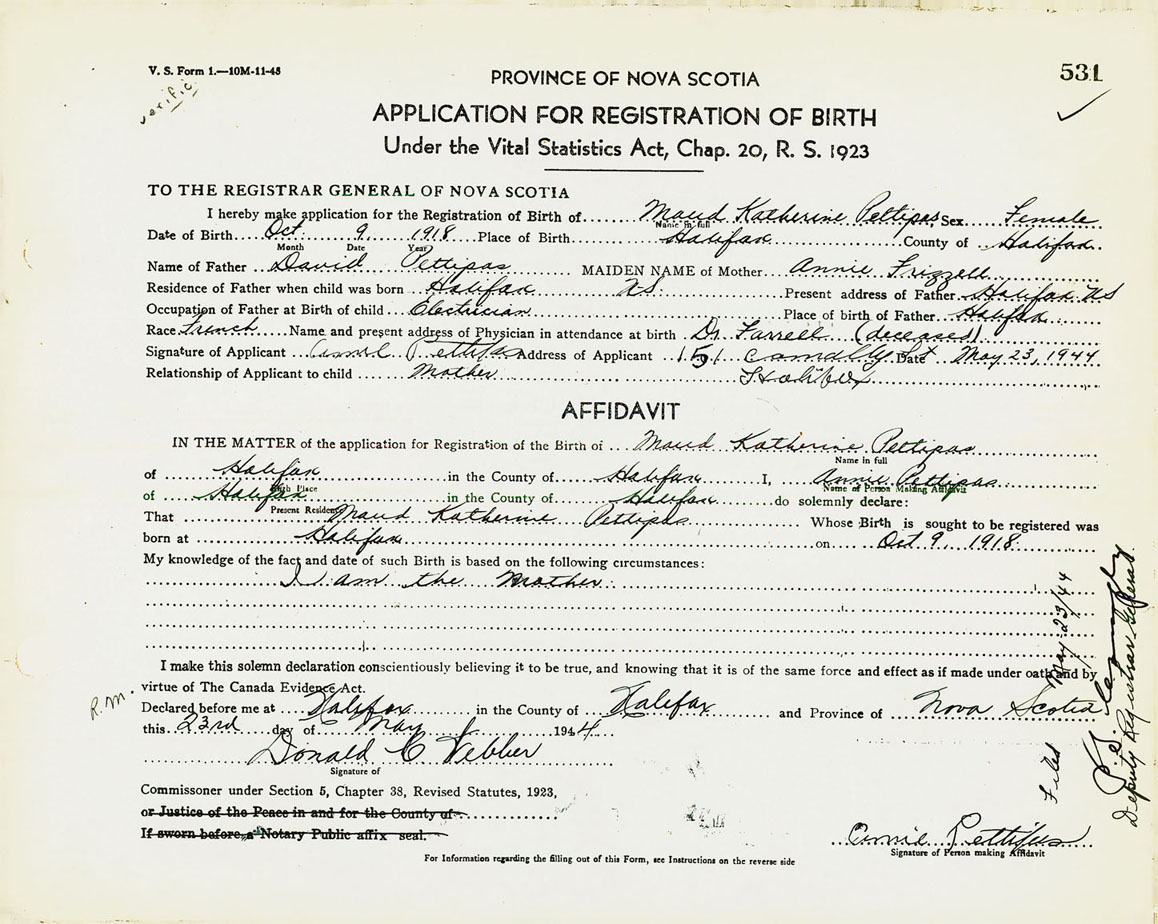 V. S. Form 1.—10M-11-43
verific
531
PROVINCE OF NOVA SCOTIA
APPLICATION FOR REGISTRATION OF BIRTH
Under the Vital Statistics Act, Chap. 20, R. S. 1923
TO THE REGISTRAR GENERAL OF NOVA SCOTIA
I hereby make application for the Registration of Birth of Maud Katherine Pettipas Sex Female
Name in full
Date of Birth Oct 9 1918 Place of Birth Halifax County of Halifax
Month Date Year
Name of Father David Pettipas MAIDEN NAME of Mother Annie Frizzell
Residence of Father when child was born Halifax NS Present address of Father Halifax NS
Occupation of Father at Birth of child Electrician Place of birth of Father Halifax
Race French Name and present address of Physician in attendance at birth Dr Farrell (deceased)
Signature of Applicant Annie Pettipas Address of Applicant 151 St Date May 23, 1944
Relationship of Applicant to child Mother Halifax
AFFIDAVIT
IN THE MATTER of the application for Registration of the Birth of Maud Katherine Pettipas
Name in full
of Halifax in the County of Halifax I, Annie Pettipas
Birth Place Name of Person Making Affidavit
of Halifax in the County of Halifax do solemnly declare:
Present Residence
That Maud Katherine Pettipas Whose Birth is sought to be registered was
born at Halifax on Oct 9, 1918
My knowledge of the fact and date of such Birth is based on the following circumstances:
I am the Mother
I make this solemn declaration conscientiously believing it to be true, and knowing that it is of the same force and effect as if made under oath and by
virtue of The Canada Evidence Act.
R.M.
Declared before me at Halifax in the County of Halifax and Province of Nova Scotia
this 23rd day of May 1944
Donald C Webber
Signature of
Commissoner under Section 5, Chapter 38, Revised Statutes, 1923,
or Justice of the Peace in and for the County of
If sworn before a Notary Public affix seal.
Annie Pettipas
Signature of Person making Affidavit
For Information regarding the filling out of this Form, see Instructions on the reverse side
Filed May 23/44
Deputy Registrar General